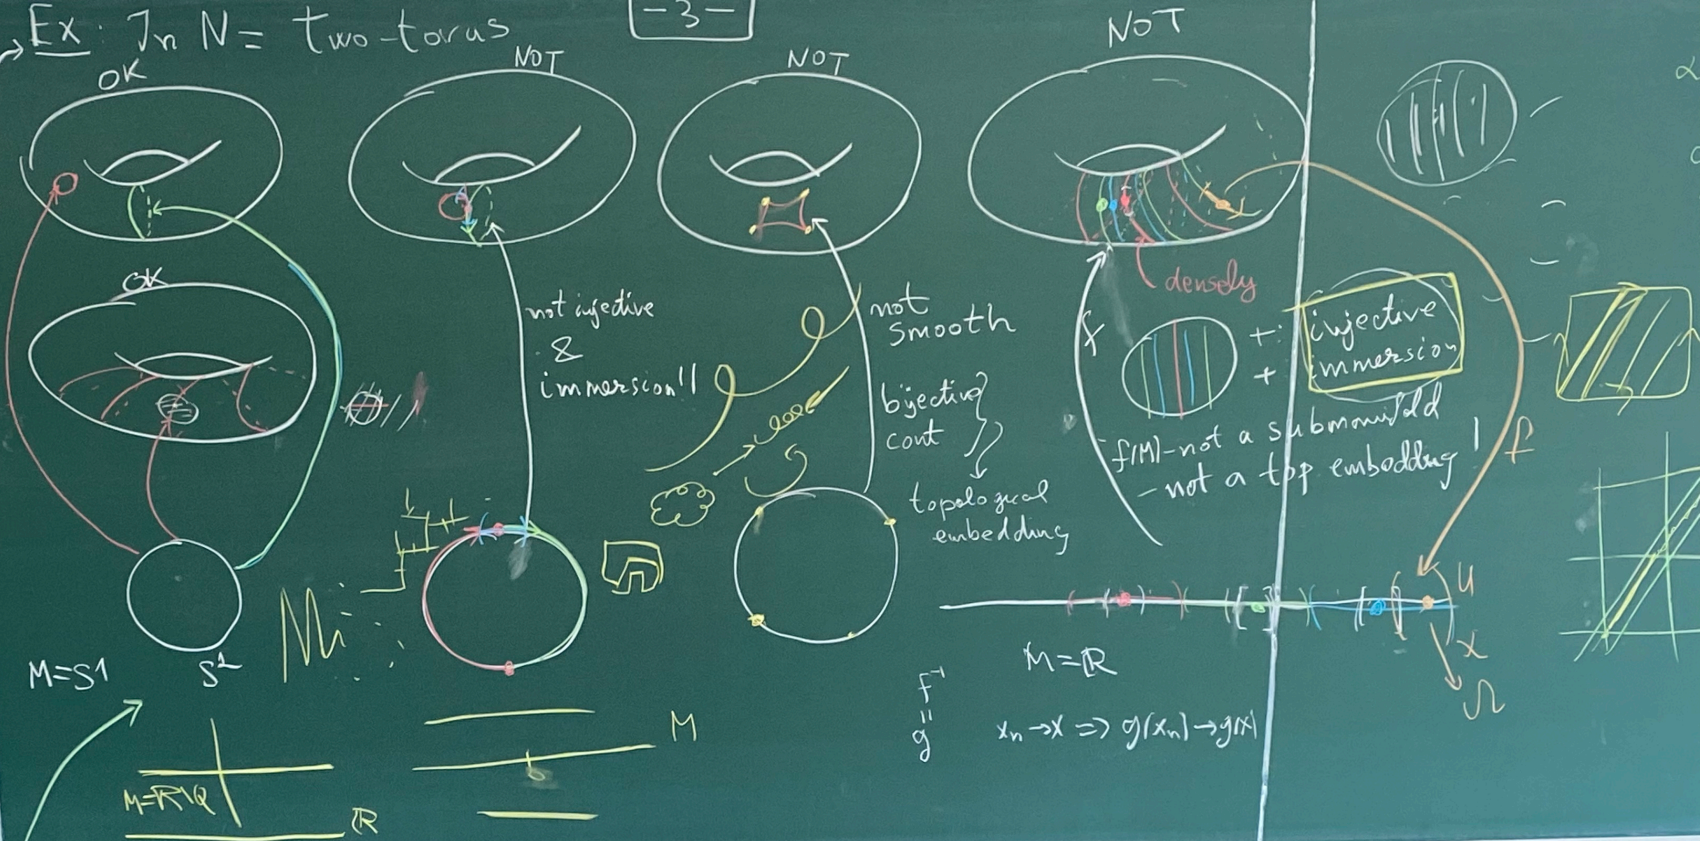 Ex: In N = two-torus
-3-
OK
NOT
NOT
NOT
OK
not injective
&
immersion!!
not
smooth
bijective
cont
topological
embedding
densely
f
+:
+
injective
immersion
f(M)-not a submanifold
- not a top embedding!
f
U
x
Ω
M=S1
S1
M=R\Q
R
M
M=R
f⁻¹
"
g
xn→x => g(xn)→g(x)
α